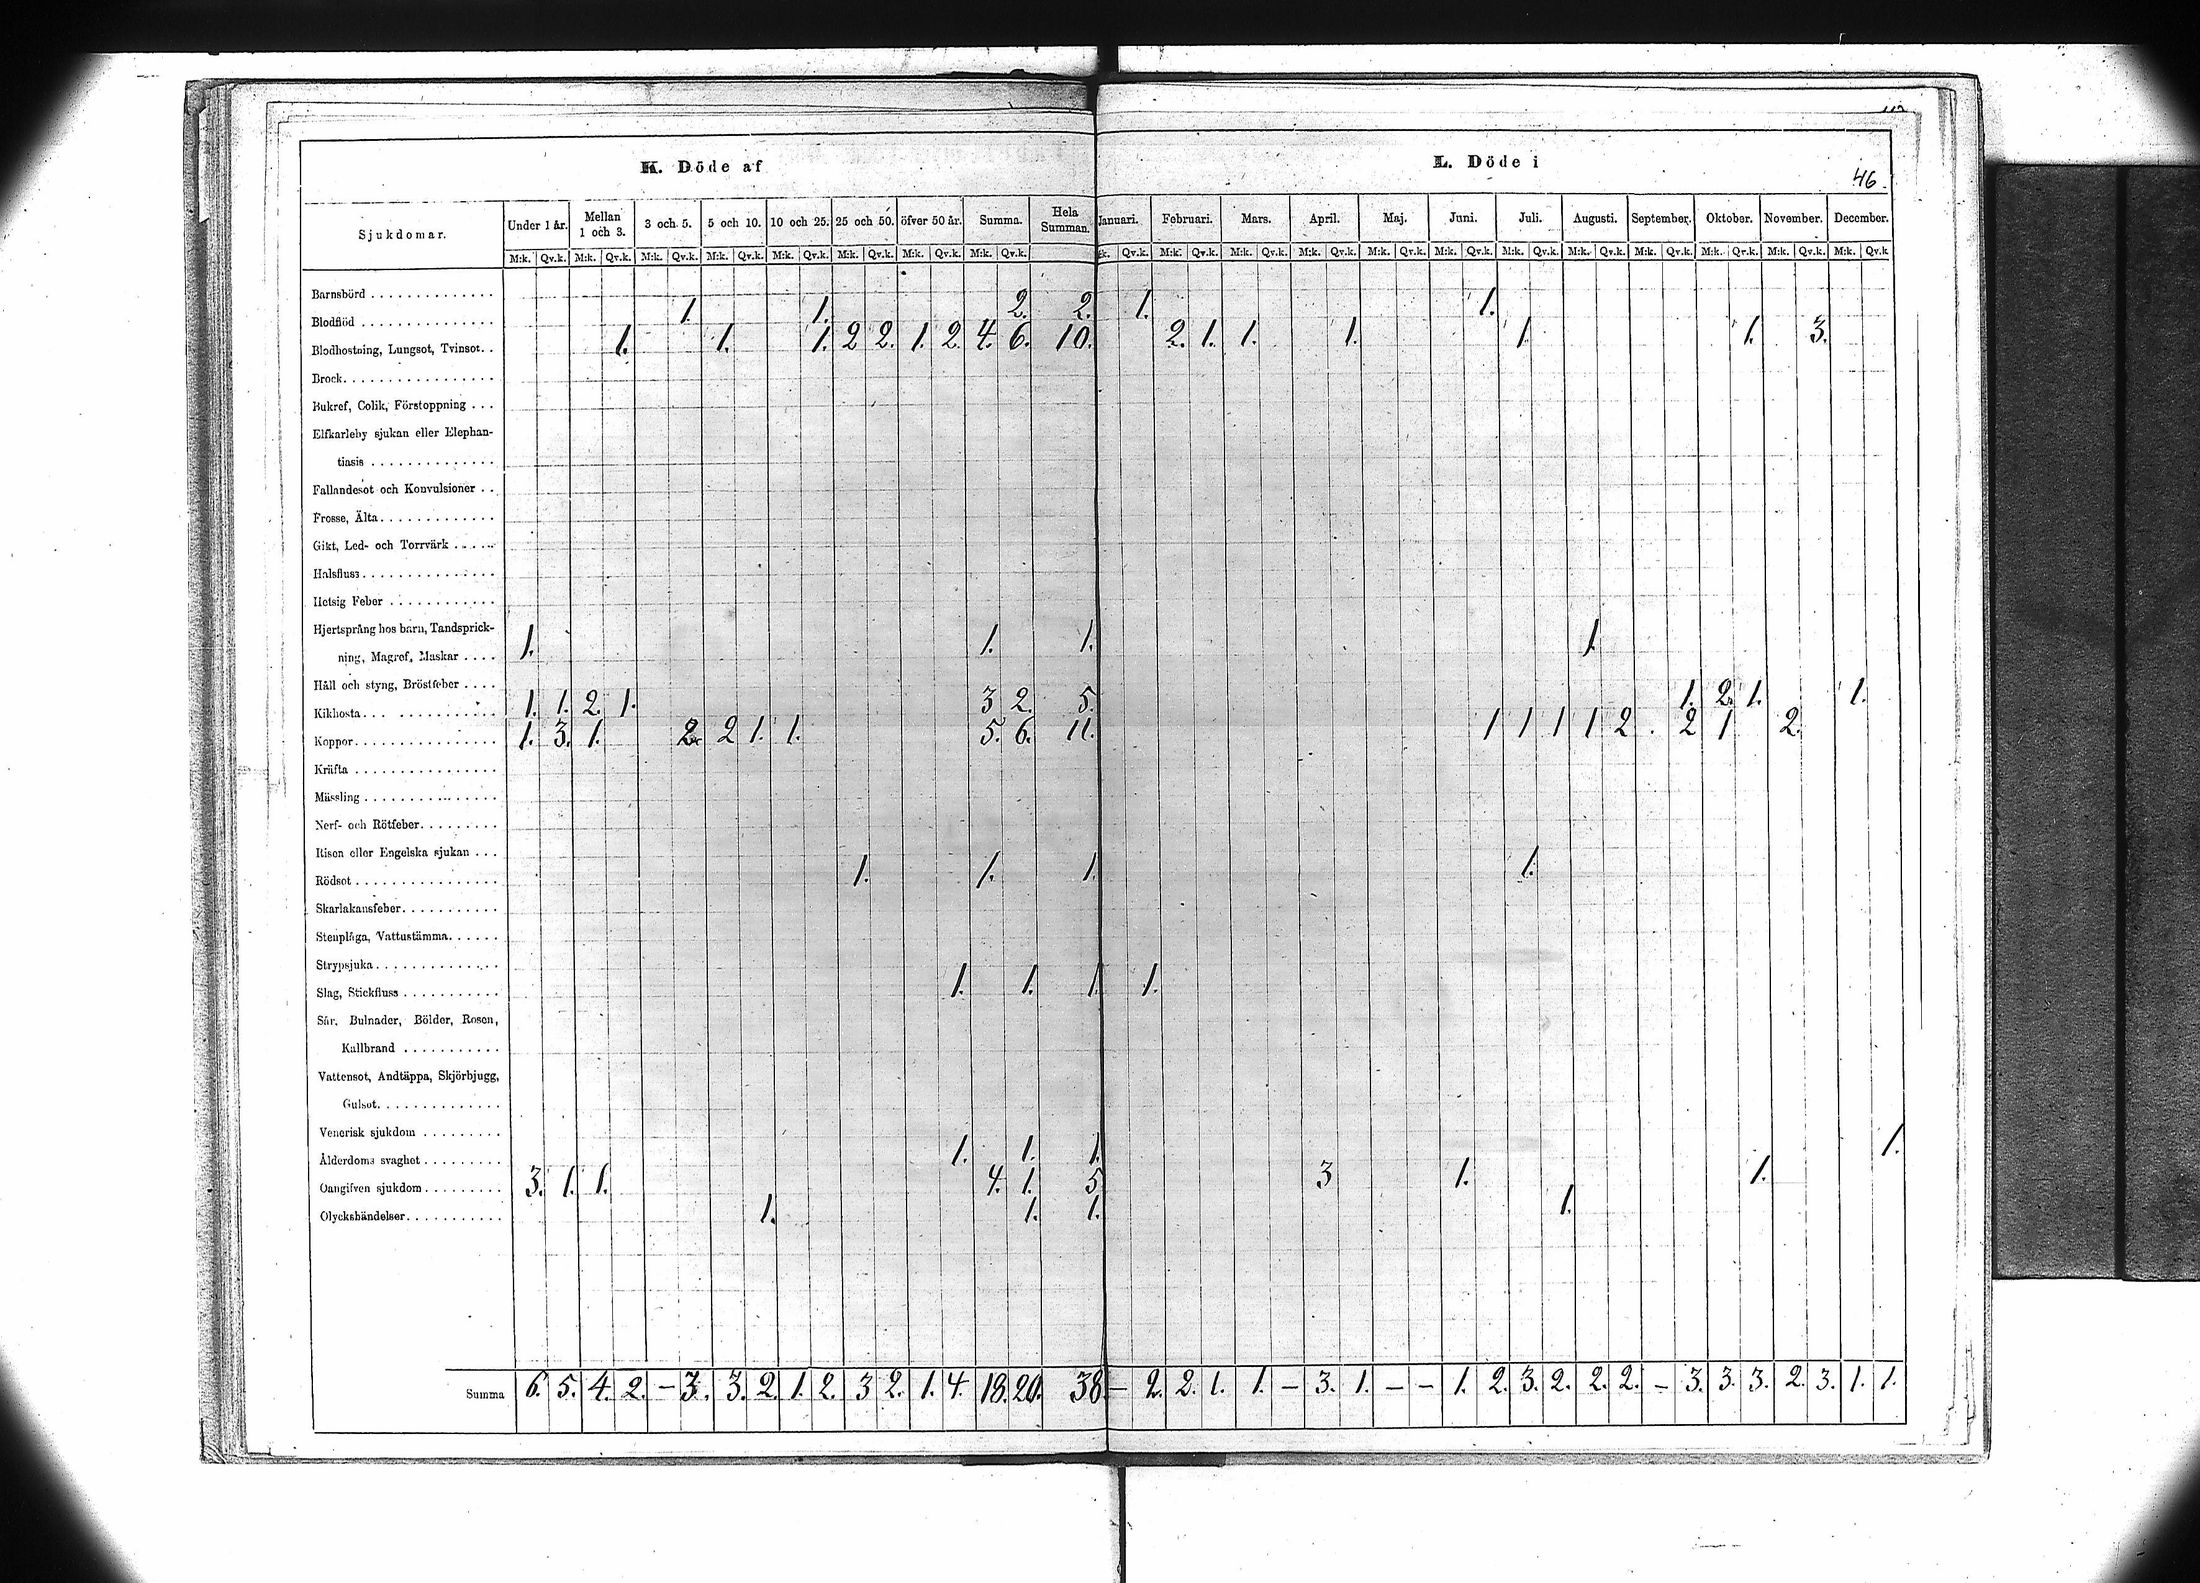 K. Döde af
L. Döde i
46.
Sjukdomar. Under 1 år. Mellan 1 och 3. 3 och 5. 5 och 10. 10 och 25. 25 och 50. öfver 50 år. Summa. Hela Summan. Januari. Februari. Mars. April. Maj. Juni. Juli. Augusti. September. Oktober. November. December.
M:k. Qv.k. M:k. Qv.k. M:k. Qv.k. M:k. Qv.k. M:k. Qv.k. M:k. Qv.k. M:k. Qv.k. M:k. Qv.k. Qv.k. M:k. Qv.k. M:k. Qv.k. M:k. Qv.k. M:k. Qv.k. M:k. Qv.k. M:k. Qv.k. M:k. Qv.k. M:k. Qv.k. M:k. Qv.k. M:k. Qv.k. M:k. Qv.k
Barnsbörd
Blodflöd 1. 1. 2. 2. 1. 1.
Blodhostning, Lungsot, Tvinsot. 1. 1. 1. 2 2. 1. 2. 4. 6. 10. 2. 1. 1. 1. 1. 1. 3.
Brock
Bukref, Colik, Förstoppning
Elfkarleby sjukan eller Elephan-
tiasis
Fallandesot och Konvulsioner
Frosse, Älta
Gikt, Led- och Torrvärk
Halsfluss
Hetsig Feber
Hjertsprång hos barn, Tandsprick-
ning, Magref, Maskar 1. 1. 1. 1.
Håll och styng, Bröstfeber
Kikhosta 1. 1. 2. 1. 3 2. 5. 1. 2. 1. 1.
Koppor 1. 3. 1. 2. 2 1. 1. 5. 6. 11. 1 1 1 1 2 2 1 2.
Kräfta
Mässling
Nerf- och Rötfeber
Risen eller Engelska sjukan
Rödsot 1. 1. 1. 1.
Skarlakansfeber
Stenplåga, Vattustämma
Strypsjuka
Slag, Stickfluss 1. 1. 1. 1.
Sår, Bulnader, Bölder, Rosen,
Kallbrand
Vattensot, Andtäppa, Skjörbjugg,
Gulsot
Venerisk sjukdom
Ålderdoms svaghet 1. 1. 1. 1.
Oangifven sjukdom 3. 1. 1. 4. 1. 5 3 1. 1.
Olyckshändelser 1. 1. 1. 1.
Summa 6. 5. 4. 2. – 3. 3. 2. 1. 2. 3 2. 1. 4. 18. 20. 38 – 2. 2. 1. 1. – 3. 1. – – 1. 2. 3. 2. 2. 2. – 3. 3. 3. 2. 3. 1. 1.